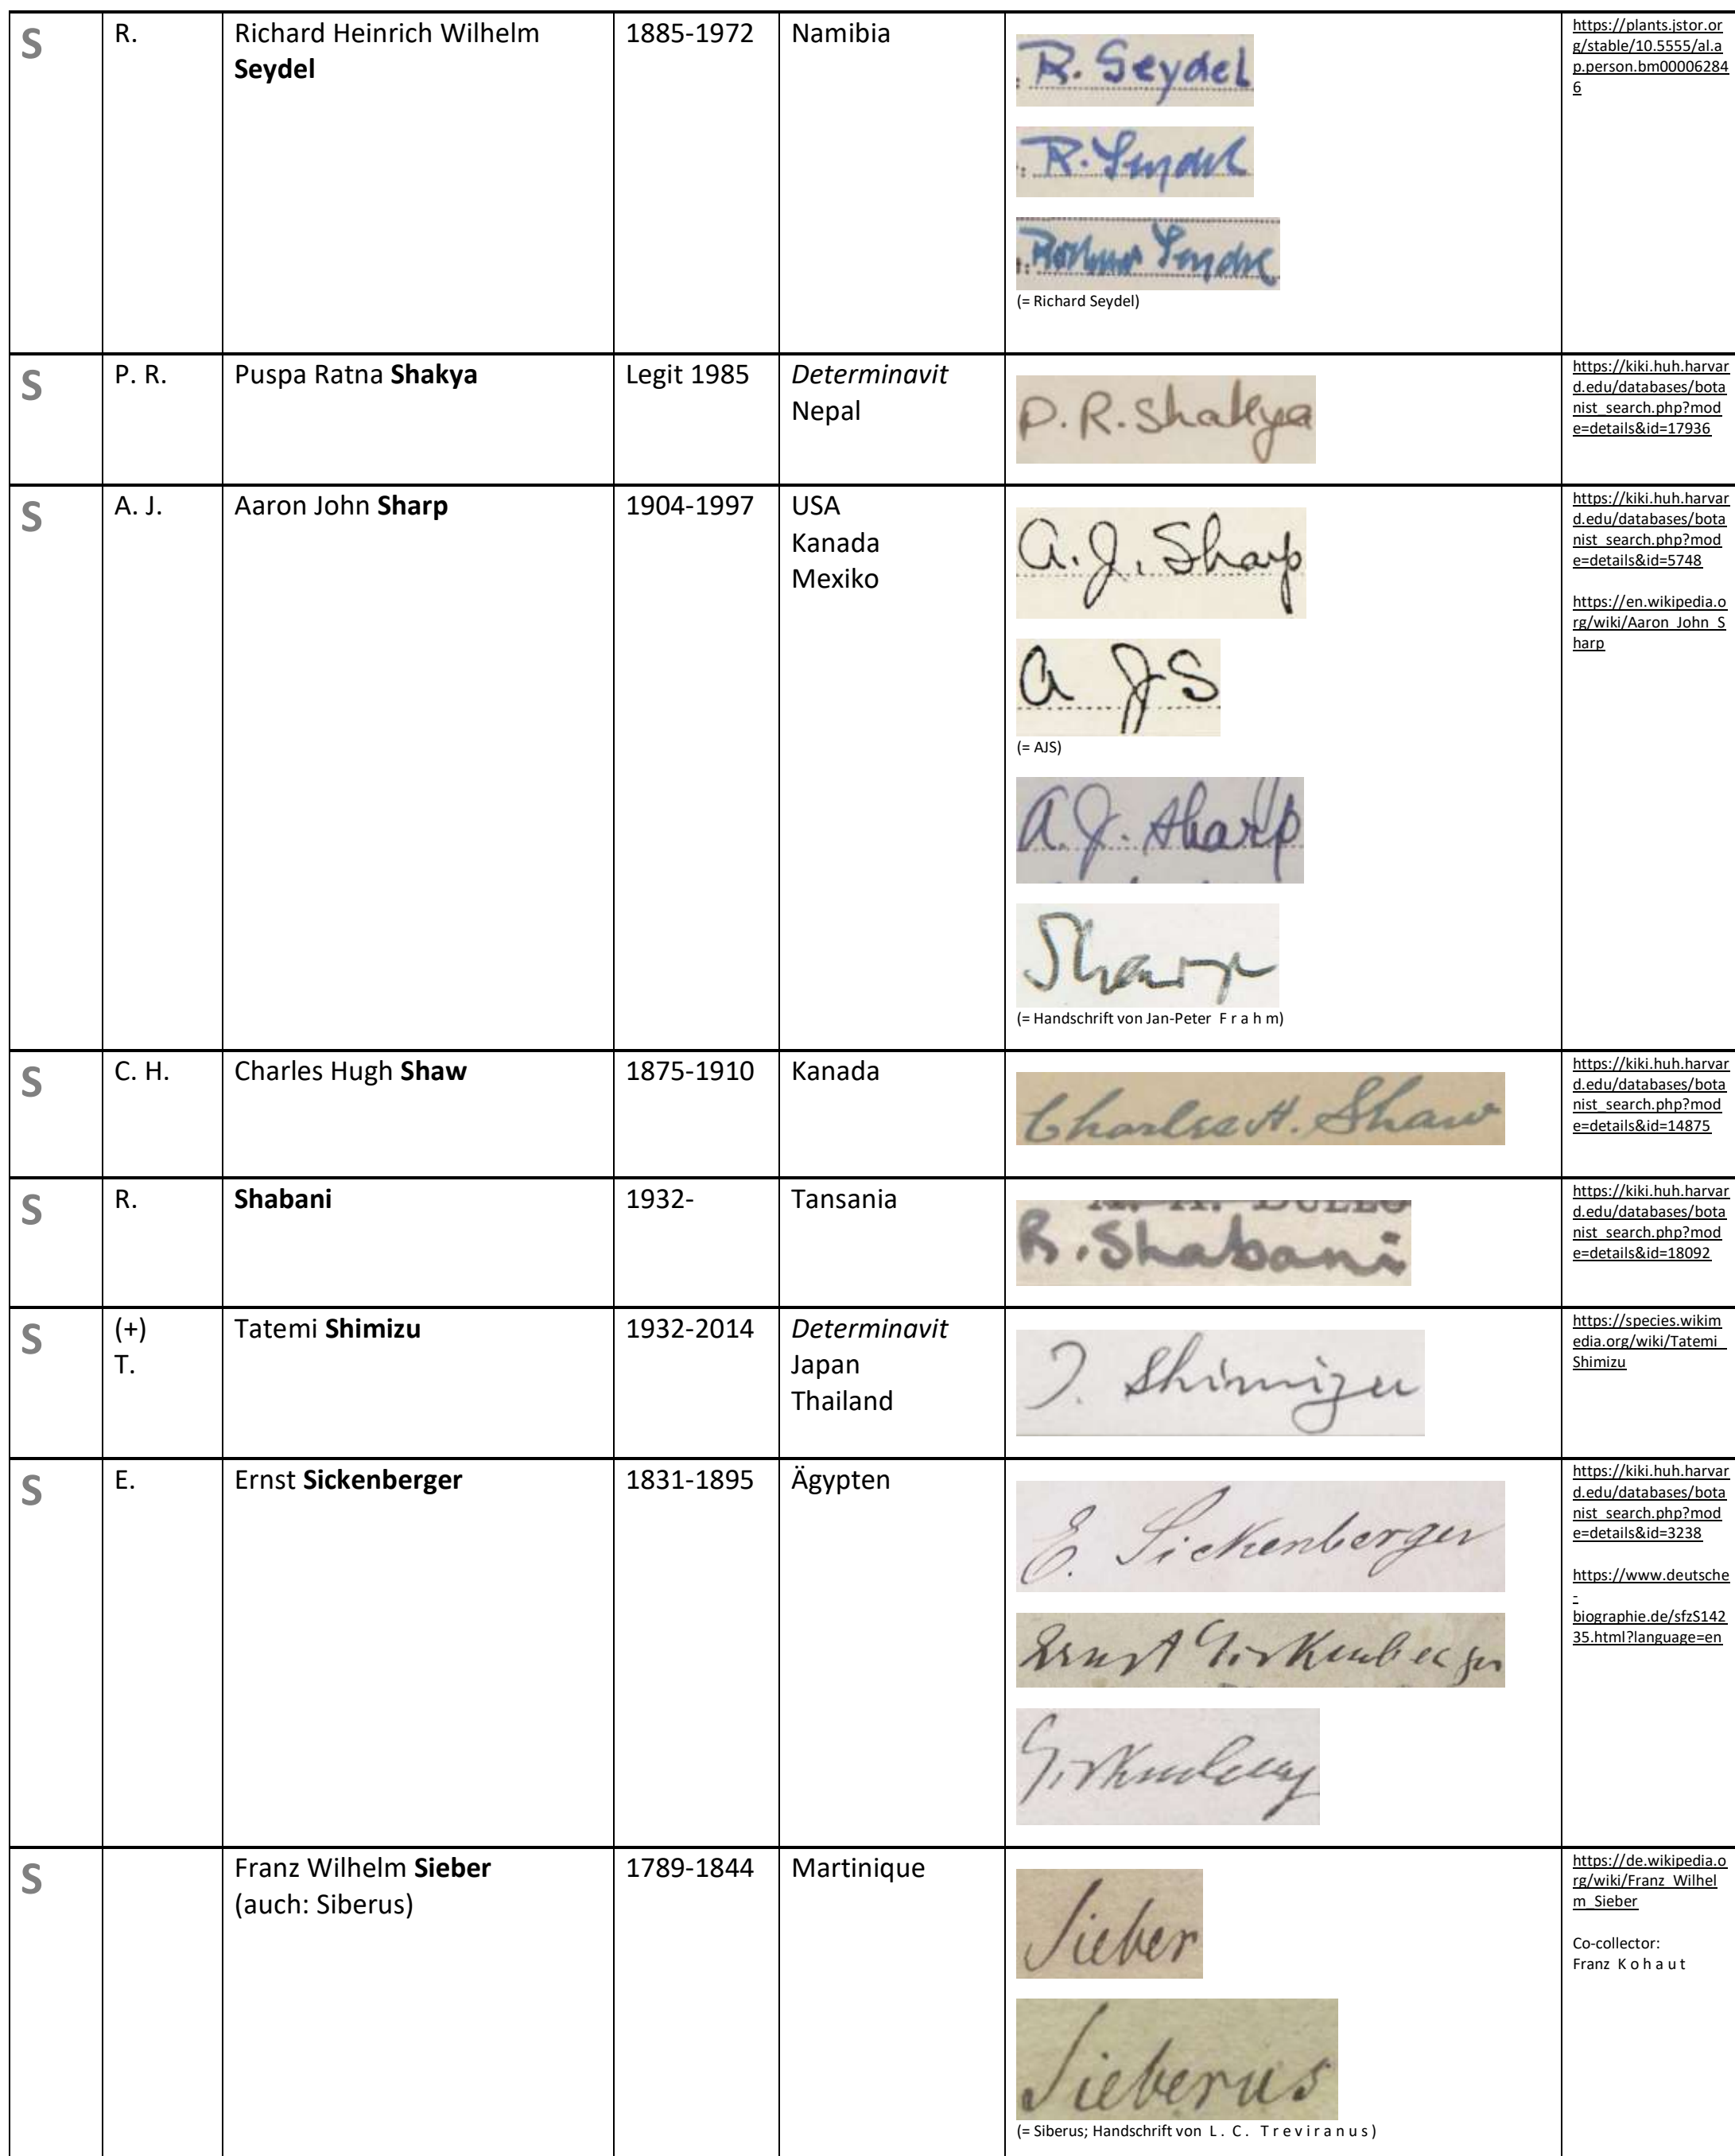 S
R.
Richard Heinrich Wilhelm
Seydel
1885-1972
Namibia
R. Seydel
R. Seydel
Richard Seydel
(= Richard Seydel)
https://plants.jstor.or
g/stable/10.5555/al.a
p.person.bm00006284
6
S
P. R.
Puspa Ratna Shakya
Legit 1985
Determinavit
Nepal
P.R. Shakya
https://kiki.huh.harvar
d.edu/databases/bota
nist_search.php?mod
e=details&id=17936
S
A. J.
Aaron John Sharp
1904-1997
USA
Kanada
Mexiko
A. J. Sharp
A J S
(= AJS)
A. J. Sharp
Sharp
(= Handschrift von Jan-Peter F r a h m)
https://kiki.huh.harvar
d.edu/databases/bota
nist_search.php?mod
e=details&id=5748
https://en.wikipedia.o
rg/wiki/Aaron_John_S
harp
S
C. H.
Charles Hugh Shaw
1875-1910
Kanada
Charles H. Shaw
https://kiki.huh.harvar
d.edu/databases/bota
nist_search.php?mod
e=details&id=14875
S
R.
Shabani
1932-
Tansania
R. Shabani
https://kiki.huh.harvar
d.edu/databases/bota
nist_search.php?mod
e=details&id=18092
S
(+)
T.
Tatemi Shimizu
1932-2014
Determinavit
Japan
Thailand
T. Shimizu
https://species.wikim
edia.org/wiki/Tatemi_
Shimizu
S
E.
Ernst Sickenberger
1831-1895
Ägypten
E. Sickenberger
Ernst Sickenberger
Sickenberg
https://kiki.huh.harvar
d.edu/databases/bota
nist_search.php?mod
e=details&id=3238
https://www.deutsche
-
biographie.de/sfzS142
35.html?language=en
S
Franz Wilhelm Sieber
(auch: Siberus)
1789-1844
Martinique
Sieber
Sieberus
(= Siberus; Handschrift von L . C . T r e v i r a n u s )
https://de.wikipedia.o
rg/wiki/Franz_Wilhel
m_Sieber
Co-collector:
Franz K o h a u t